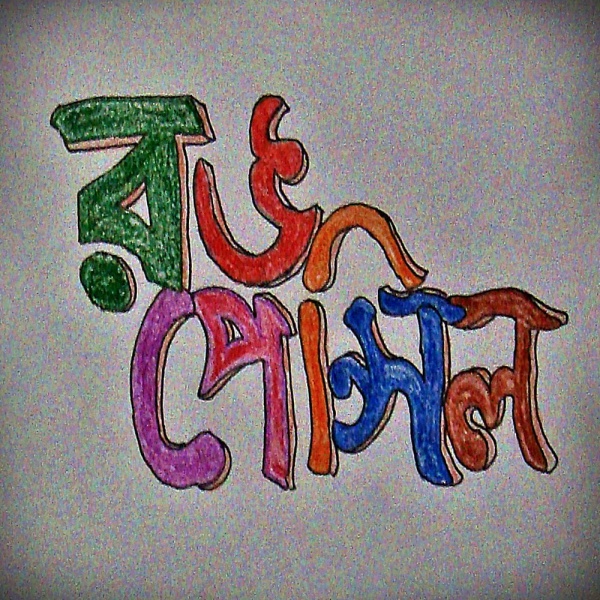 রঙ
পেন্সিল